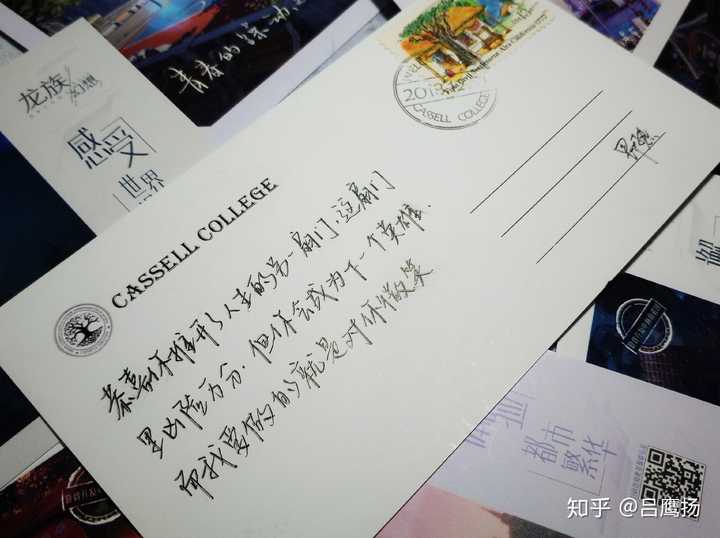 青春的
龙族幻想
感受
世界
2018
CASSELL COLLEGE
CASSELL COLLEGE
恭喜你推开了人生的另一扇门,这扇门
里凶险万分.但你会成为下一个英雄.
而我要做的就是对你微笑
都市
繁华
知乎 @吕鹰扬